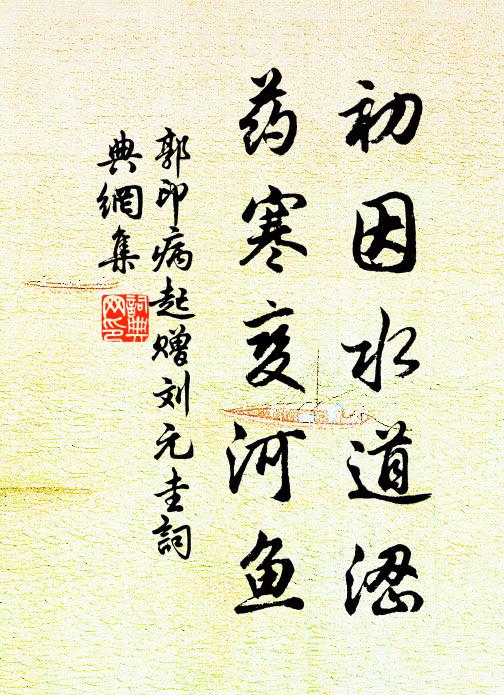 初因水道涩
药寒变河鱼
郭印病起赠刘元圭詞
典網集
詞典
网印